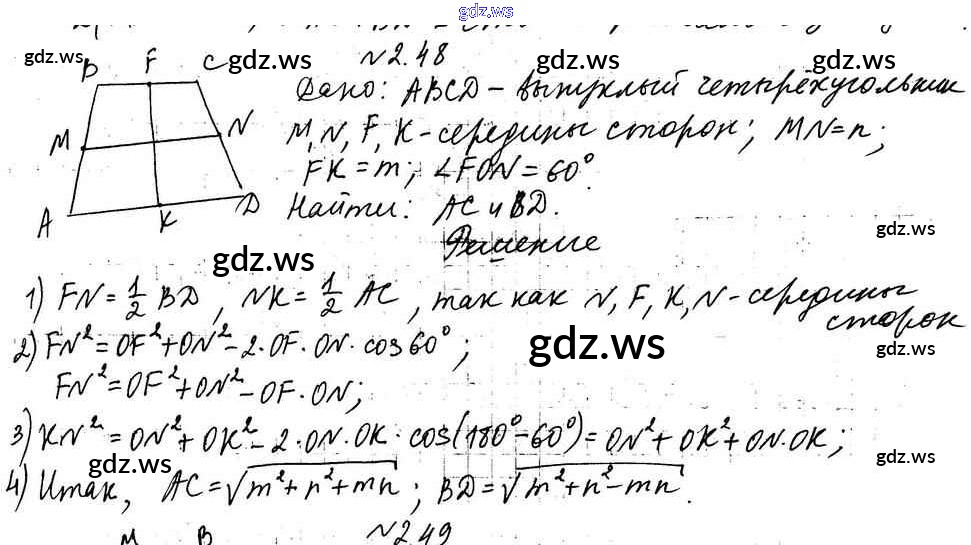 gdz.ws
№2.48
gdz.ws gdz.ws gdz.ws gdz.ws
B F C
Дано: ABCD – выпуклый четырёхугольник
M N
M, N, F, K – середины сторон; MN = n;
FK = m; ∠FON = 60°.
A K D
Найти: AC и BD.
gdz.ws
Решение
gdz.ws
1) FN = 1/2 BD, NK = 1/2 AC, так как N, F, K, N – середины
сторон
2) FN² = OF² + ON² – 2·OF·ON·cos 60°;
gdz.ws gdz.ws
FN² = OF² + ON² – OF·ON;
3) KN² = ON² + OK² – 2·ON·OK·cos(180° – 60°) = ON² + OK² + ON·OK;
gdz.ws gdz.ws gdz.ws
4) Итак, AC = √(m² + n² + mn); BD = √(m² + n² – mn).
M B №2.49